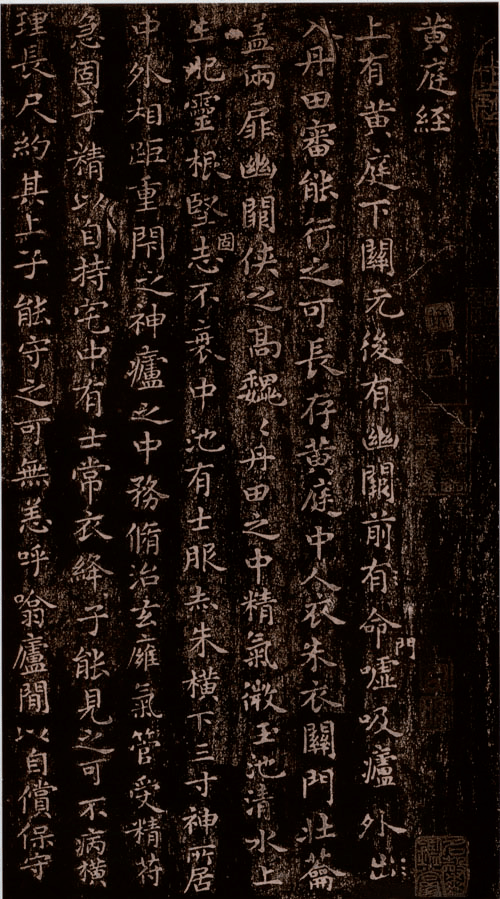 黄庭經
上有黄庭下關元後有幽闕前有命門嘘吸廬外出
入丹田審能行之可長存黄庭中人衣朱衣關門壯籥
盖兩扉幽闕俠之高巍〻丹田之中精氣微玉池清水上
生肥靈根堅固志不衰中池有士服赤朱横下三寸神所居
中外相距重閇之神廬之中務脩治玄廱氣管受精符
急固子精以自持宅中有士常衣絳子能見之可不病横
理長尺約其上子能守之可無恙呼噏廬間以自償保守